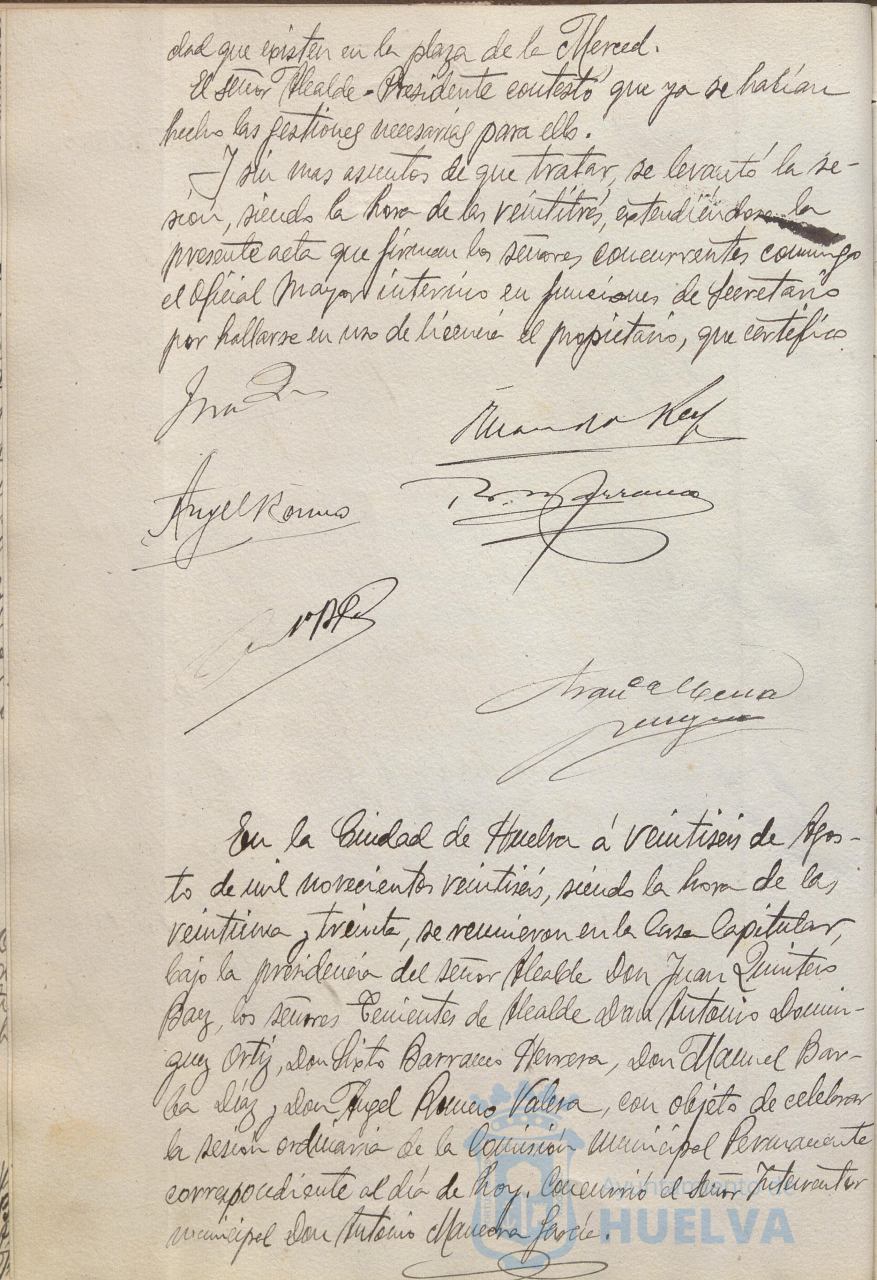 dad que existen en la plaza de la Merced.
El señor Alcalde-Presidente contestó que ya se habían
hecho las gestiones necesarias para ello.
Y sin mas asuntos de que tratar, se levantó la se-
sión, siendo la hora de las veintitrés, extendiéndose la
presente acta que firman los señores concurrentes conmigo
el Oficial Mayor interino en funciones de Secretario
por hallarse en uso de licencia el propietario, que certifico
Angel Romero
En la Ciudad de Huelva á veintiseis de Agos-
to de mil novecientos veintiseis, siendo la hora de las
veintiuna y treinta, se reunieron en la Casa Capitular,
bajo la presidencia del señor Alcalde Don Juan Quintero
Baez, los señores Tenientes de Alcalde Don Antonio Domin-
guez Ortiz, Don Sixto Barranco Herrera, Don Manuel Bar-
ba Díaz y Don Angel Romero Valera, con objeto de celebrar
la sesión ordinaria de la Comisión municipal Permanente
correspondiente al día de hoy. Concurrió el señor Interventor
municipal Don Antonio
Ayuntamiento de
HUELVA